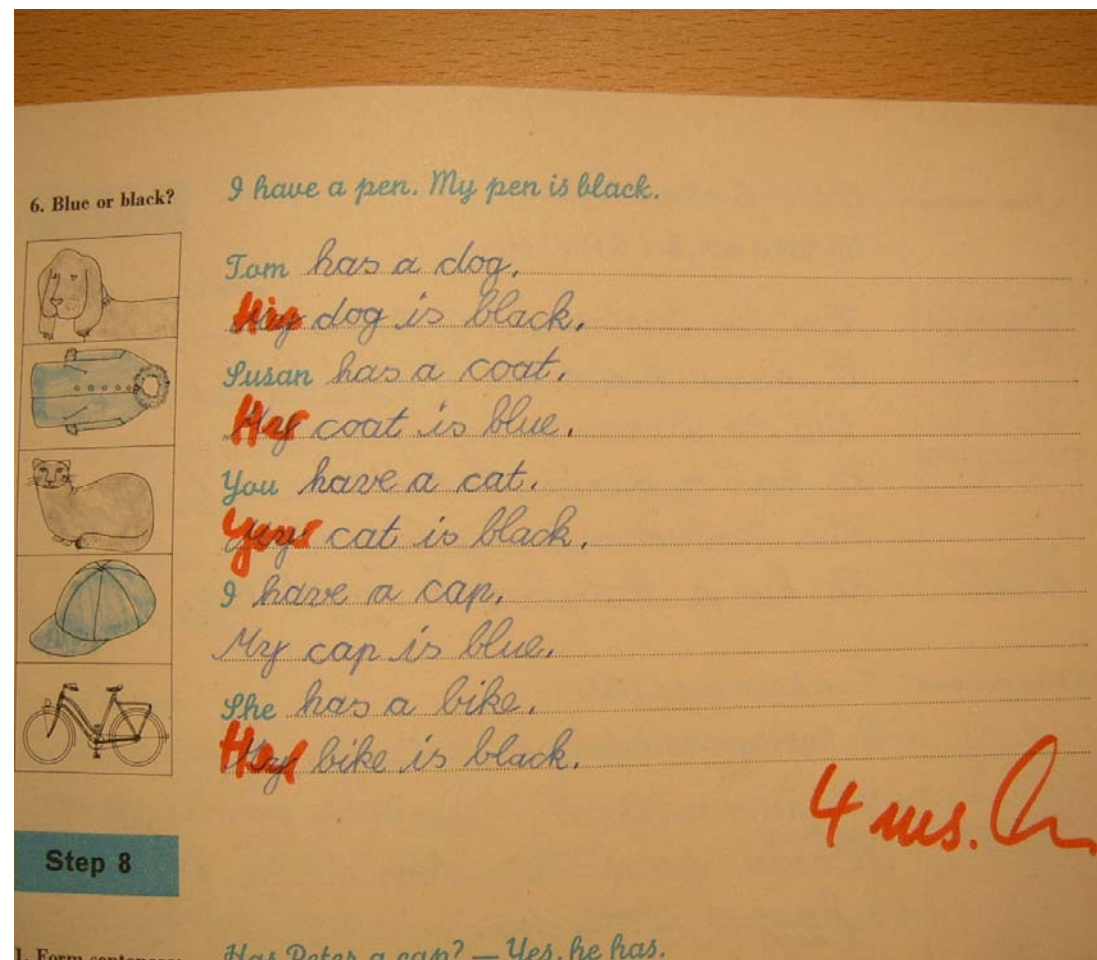 6. Blue or black?
I have a pen. My pen is black.
Tom has a dog.
His dog is black.
Susan has a coat.
Her coat is blue.
You have a cat.
Your cat is black.
I have a cap.
My cap is blue.
She has a bike.
Her bike is black.
4
Step 8
1. Form sentences:
Has Peter a cap? — Yes, he has.